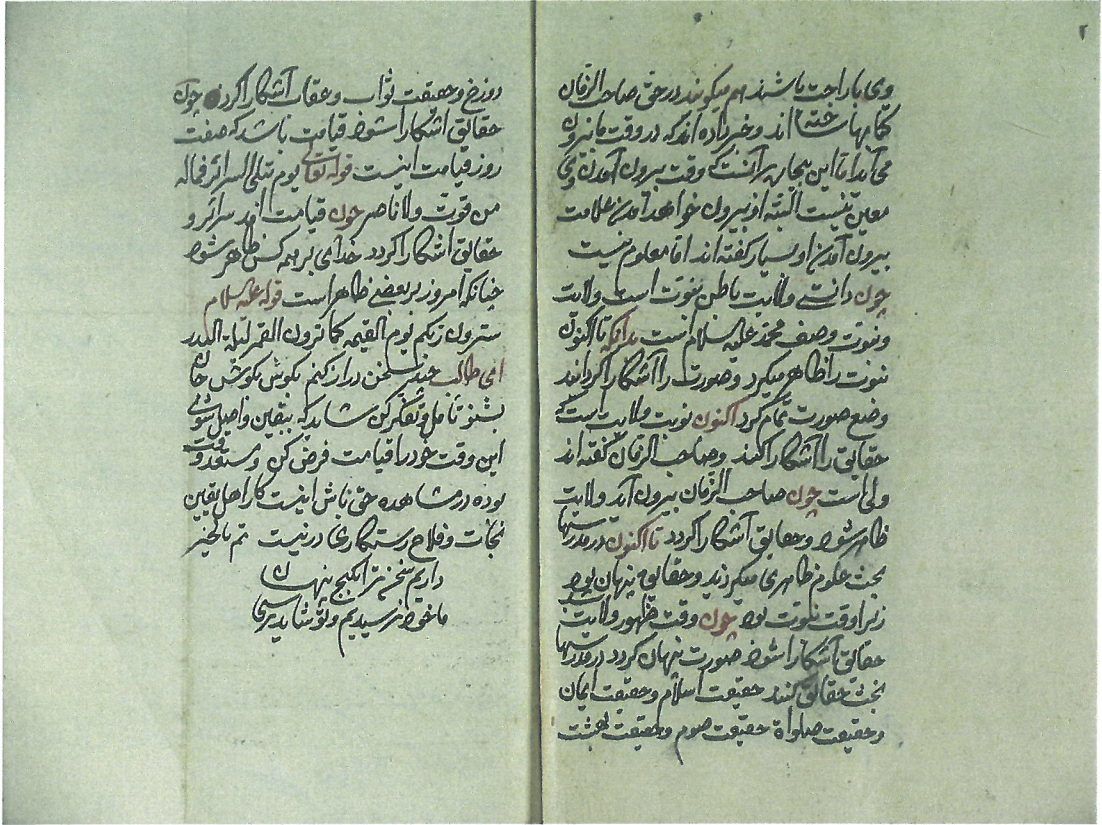 ۲
وی یا راحت باشند هم میگویند در حق صاحب الزمان
کتابها ساخته اند و خبر داده اند که در وقت ما بیرون
می آید اما این بیچاره بر آنست که وقت بیرون آمدن وی
معین نیست البته او بیرون خواهد آمدن علامت
بیرون آمدن او بسیار گفته اند اما معلوم نیست
چون دانستی ولایت باطن نبوت است ولایت
و نبوت وصف محمد علیه السلام است بدانکه تا اکنون
نبوت را ظاهر میکرد و صورت را آشکارا کردانند
وضع صورت تمام کرد اکنون نوبت ولایت است که
حقایق را آشکارا کند و صاحب الزمان گفته اند
ولی است چون صاحب الزمان بیرون آید ولایت
ظاهر شود و حقایق آشکارا کردد تا اکنون در مدرسها
بحث علوم ظاهری میکردند و حقایق پنهان بود
زیرا وقت نبوت بود چون وقت ظهور ولایت شد
حقایق آشکارا شود صورت پنهان کردد در مدرسها
بحث حقایق کنند حقیقت اسلام و حقیقت ایمان
و حقیقت صلواة حقیقت صوم و حقیقت بهشت
دوزخ و حقیقت ثواب و عقاب آشکارا کردد چون
حقایق اشکارا شود قیامت باشد که صفت
روز قیامت اینست قوله تعالی یوم تبلی السرائر فماله
من قوت ولا ناصر چون قیامت آید سرائر و
حقایق اشکارا کردد خدای بر همه کس ظاهر شود
چنانکه امروز بر بعضی ظاهر است قوله علیه السلام
سترون ربکم یوم القیمه کما ترون القمر لیلة البدر
ای طالب چند سخن دراز کنم بکوش بکوش جان
بشنو تأمل و تفکر کن شاید که بیقین واصل شوی
این وقت خود را قیامت فرض کن و مستعد وقت
بوده در مشاهده حق باش اینست کار اهل یقین
نجات و فلاح رستگاری در نیست تم بالخیر
دادیم ترا گنج نهان
ما خود نرسیدیم و تو شاید برسی